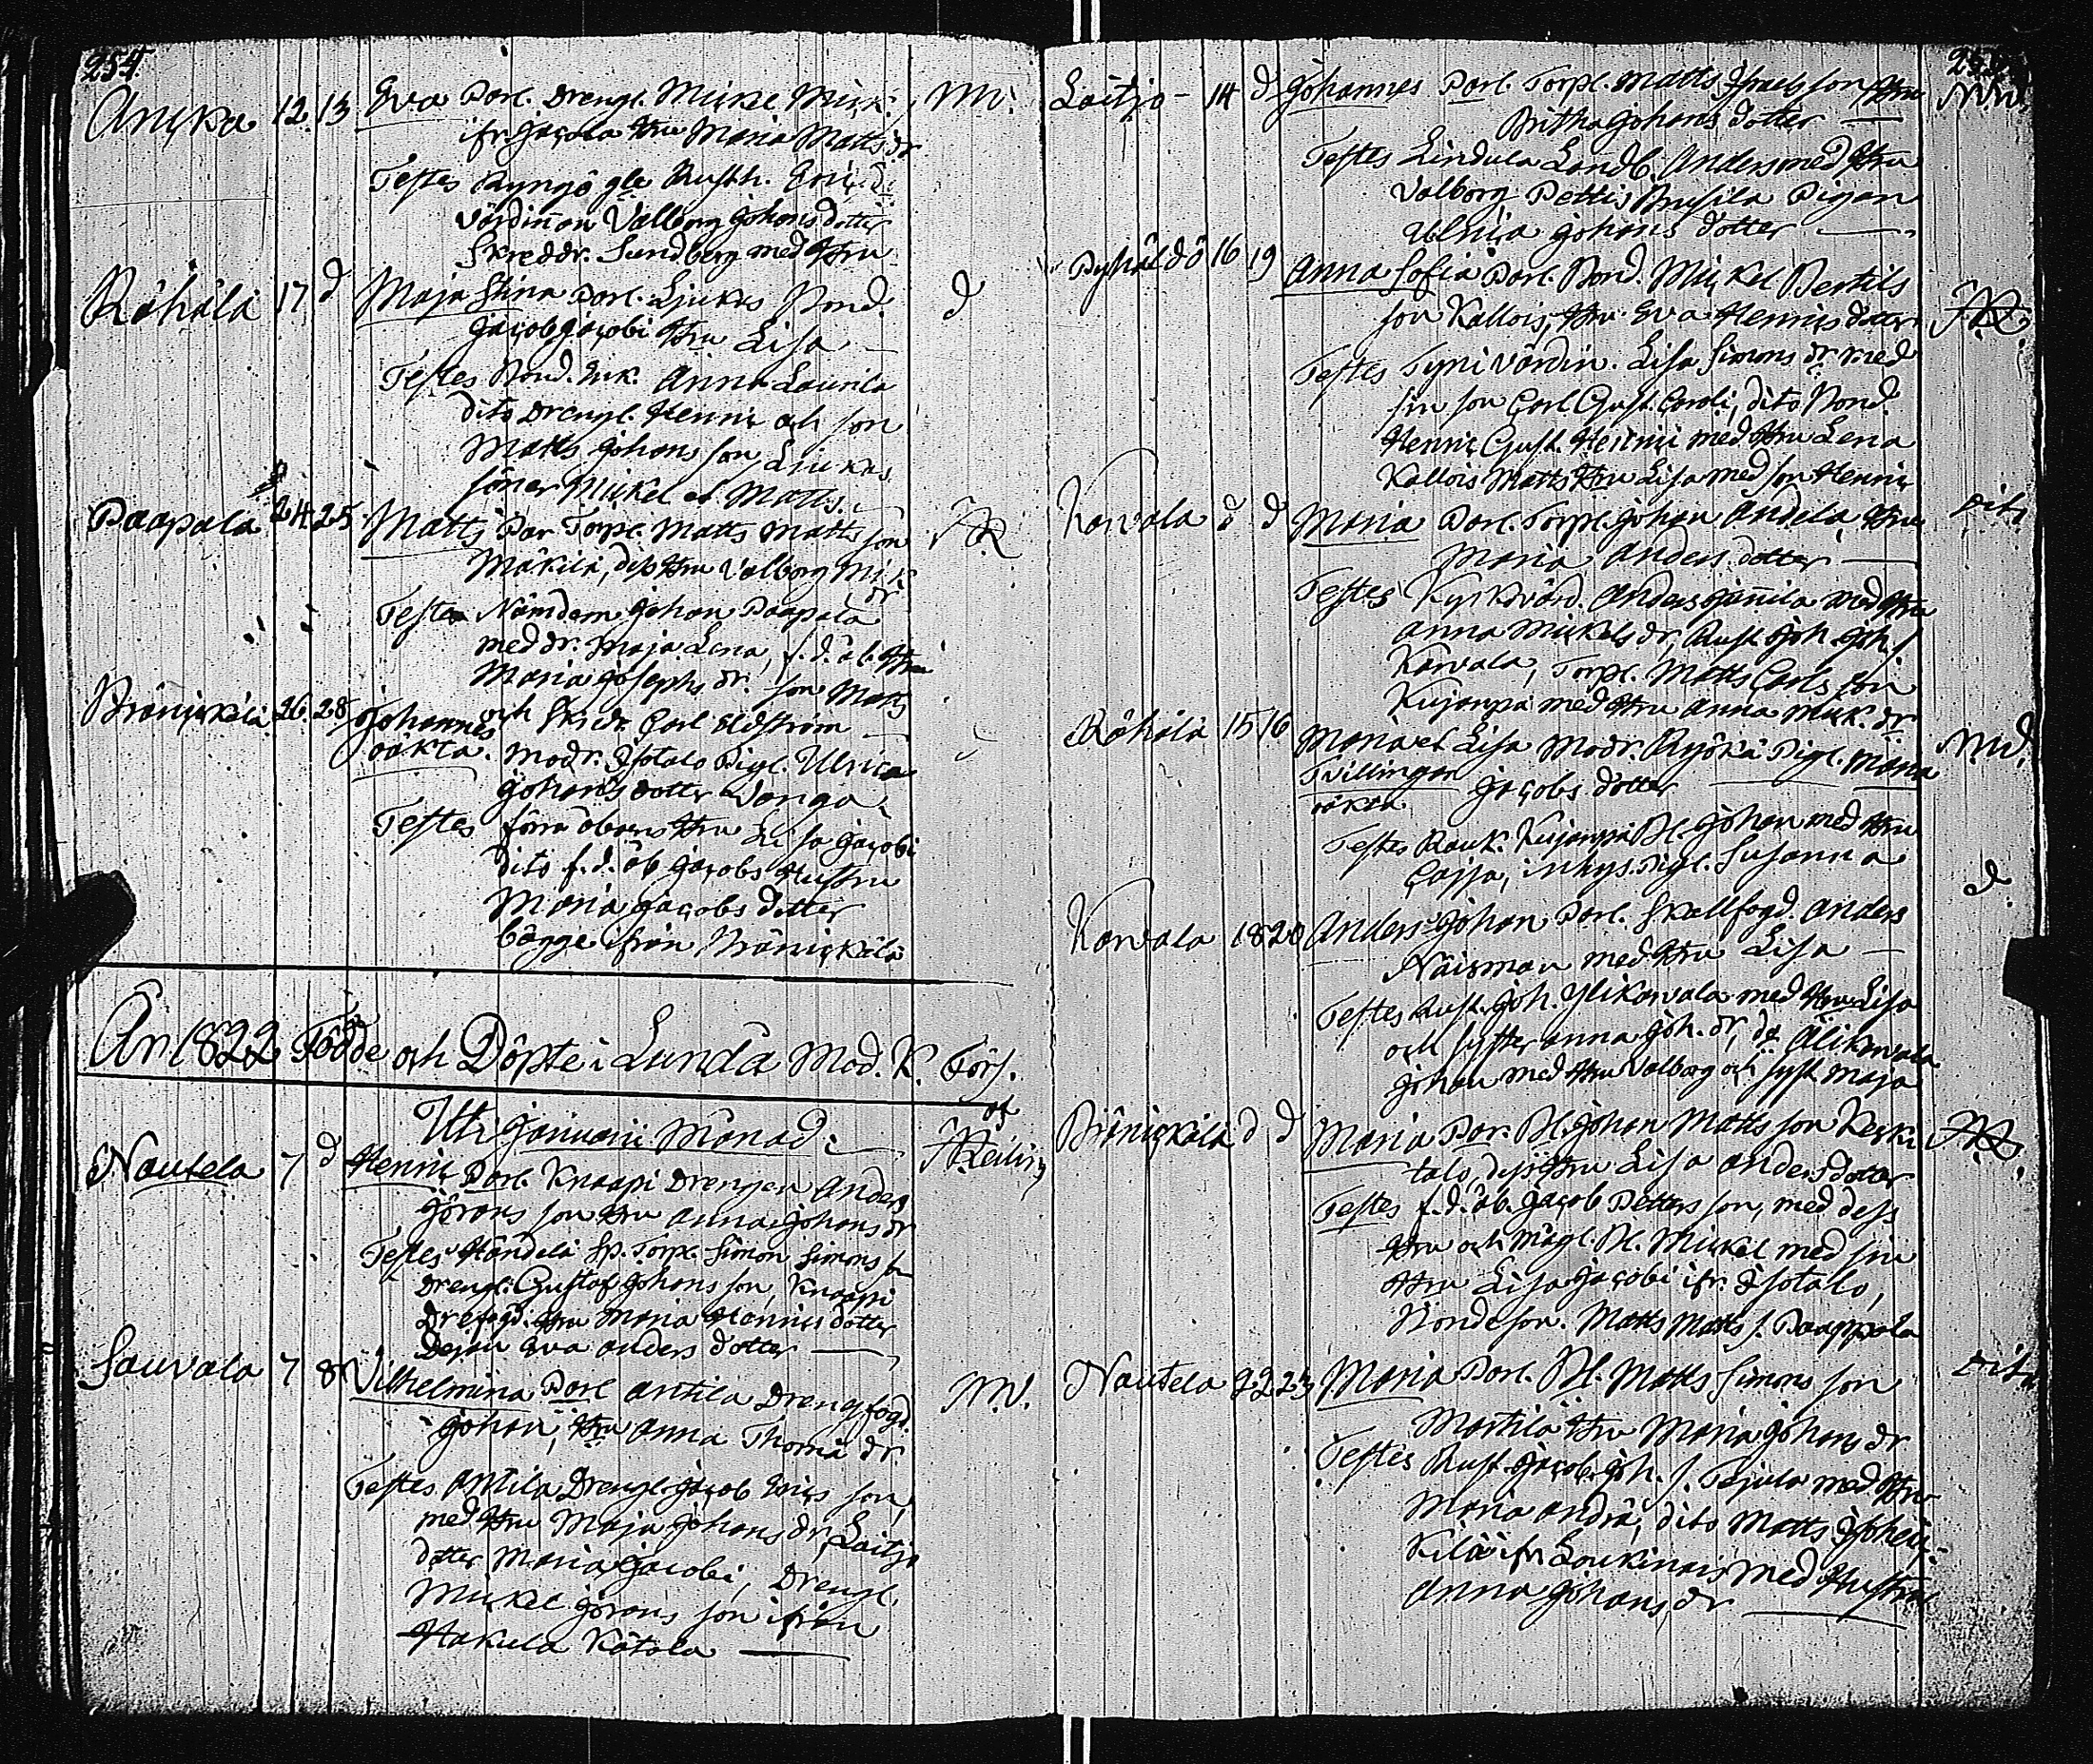 254.
Ancka 12. 13 Eva Parl. Drengl. Mickel Mick: M:
ifr. Jacola Hru Maria Matts dr
Testes Ryngö gle Rusth. Eric
värdinnan Valborg Johansdotter
Skreddr. Sundberg med Hru
Röhälä 17 d Maja Stina Parl. Ljukas Bond. d
Jacob Jacobi Hru Lisa
Testes Bond. Enk. Anna Laurila
dito Drengl. Henric och son
Matts Johans son Ljukas
söner Mickel et Matts.
Paapala 24. 25 Matts Par Torpl. Matts Matts son
Mäkilä, dess Hru Valborg Mick
dr
Testes Nämdem Johan Paapala
med dr. Maja Lena, f. d. åb. Hru
Maria Josephs dr. son Matts
och Skrdr. Carl Hedström
Bränickälä 26. 28 Johannes
oäkta. Modr. Isotalo Pigl. Ulrica
Johans dotter
Testes förra åboens Hru Lisa Jacobi
dito f. d. åb Jacobs Hustru
Maria Jacobs dotter
bägge ifrån Bränickälä
År 1822 Födde och Döpte i Lundå Mod. K. Förs.
Uti Januarii Månad:
Nautela 7 d Henric Parl. Knaapi Drengen Anders
Görans son Hru Anna Johans dr
Testes Händelä Sp. Torpl. Simon Simons son
Drengl. Gustaf Johans son, Knaapi
Hru Maria Henrics dotter
Eva Anders dotter
Sauvala 7 8 Vilhelmina Parl Antila Drengfogd. M.W.
Johan, Hru Anna Thomæ dr
Testes Antila Drengl. Jacob Erics son,
med Hru Maja Johans dr, Laitjo
dotter Maria Jacobi, Drengl.
Mickel Görans son ifrån
Hakula Kåtola
Laitjo - 14 d Johannes Parl. Torpl. Matts Israels son Hru
Britha Johans dotter
Testes Lindula Landb. Anders med Hru
Valborg Pettis Brusila Pigan
Ulrica Johans dotter
16 19 Anna Sofia Parl. Bond. Mickel Bertils
son Kallois, Hru Eva Henrics dotter
Testes Tyni värdin. Lisa Simons dr med
sin son Carl Gust. Caroli, dito Bond.
Henric Gust. Henrici med Hru Lena
Kallois Matts Hru Lisa med son Henric
Karvala d d Maria Parl. Torpl. Johan Andela, Hru dito
Maria Anders dotter
Testes Kyrkvärd. Anders Jannila med Hru
Anna Mickels dr, Rust. Joh. Joh. s
Karvala, Torpl. Matts Carls son
Kujanpä med Hru Anna Mick. dr
Röhälä 15 16 Maria et Lisa Modr. Ryökä Pigl. Maria M.W.
Tvillingar Jacobs dotter
oäkta
Testes Kujanpä Bl. Johan med Hru
Cajsa, inhys. Pigl. Susanna
Karvala 18 20 Anders Johan Parl. Skallfogd. Anders d.
Näisman med Hru Lisa
Testes Rust. Joh. Ylikarvala med Hru Lisa
och syster Anna Joh. dr, do Alikarvala
Johan med Hru Valborg och syst. Maja
Bränickälä d d Maria Par. Bl. Johan Matts son Keski
talo, dess Hru Lisa Anders dotter
Testes f. d. åb. Jacob Petters son, med dess
Hru och mågl. Bl. Mickel med sin
Hru Lisa Jacobi ifr. Isotalo,
Bonde son. Matts Matts s. Paappala
Nautela 22 23 Maria Parl. Bl. Matts Simons son dito
Martila Hru Maria Johans dr
Testes Rust. Jacob. Joh. s. Tejula med Hru
Maria Andrä, dito Matts
Kilä ifr Loukinais med Hustru
Anna Johans dr